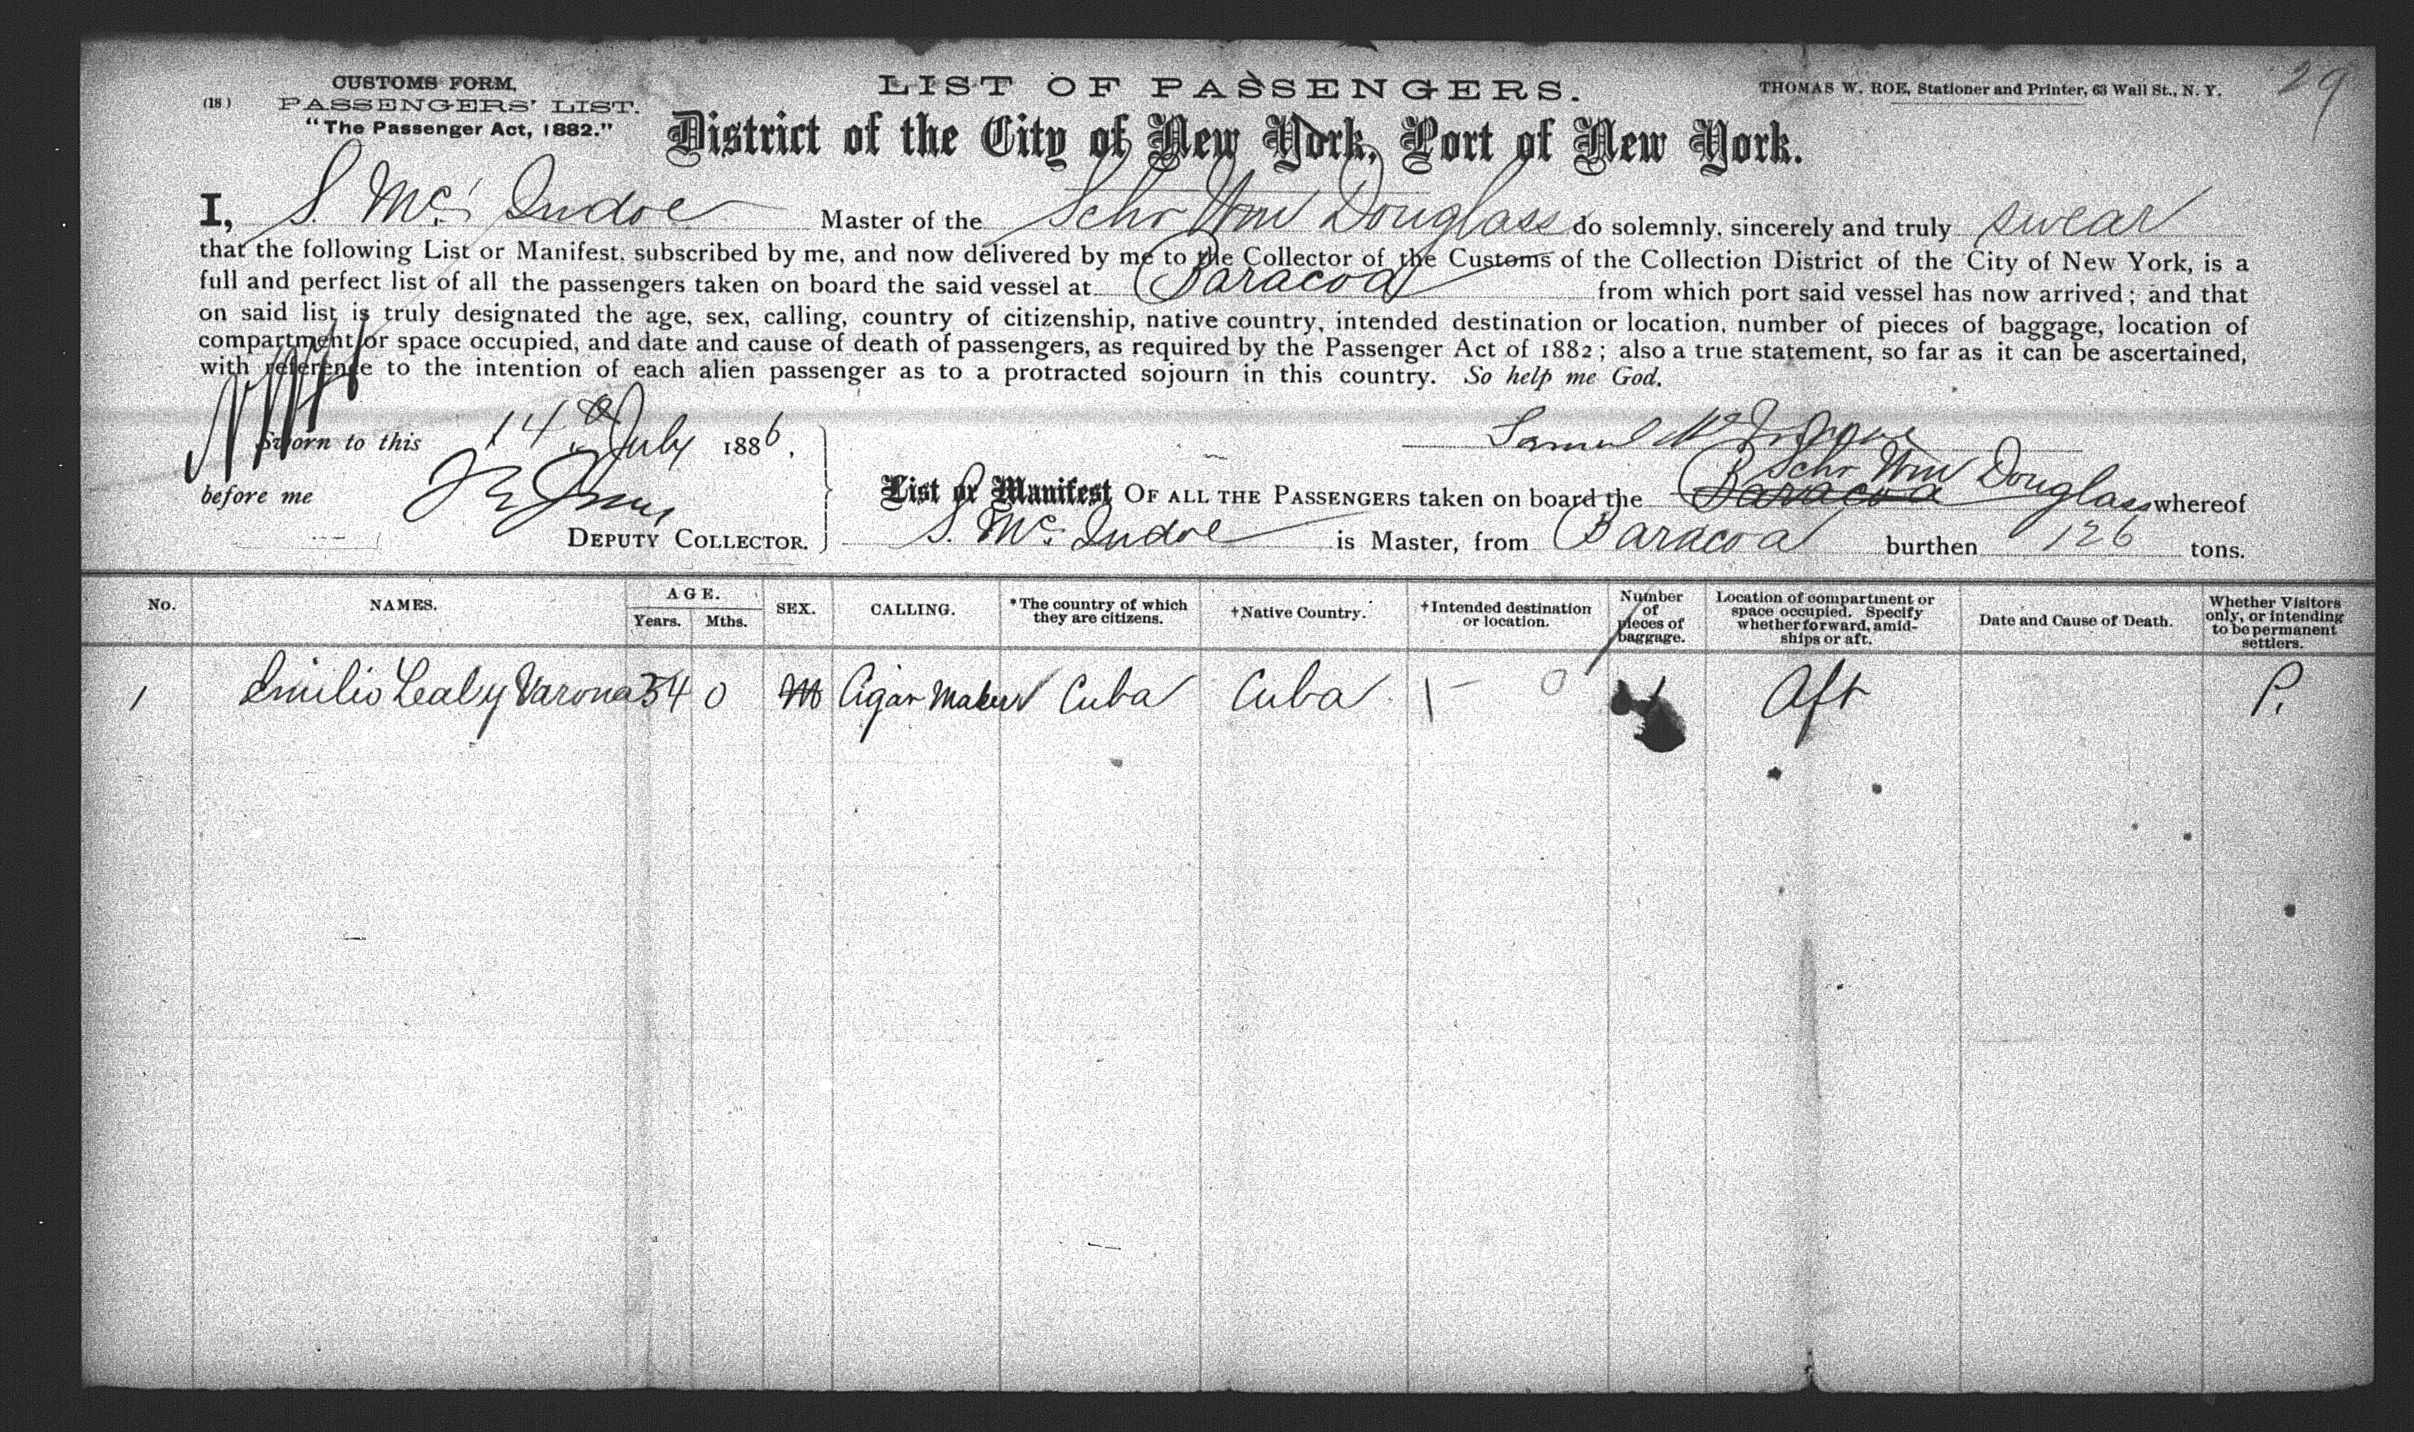 29
CUSTOMS FORM,
(18) PASSENGERS' LIST.
"The Passenger Act, 1882."
LIST OF PASSENGERS.
THOMAS W. ROE, Stationer and Printer, 63 Wall St., N. Y.
District of the City of New York, Port of New York.
I, S. Mc. Indoe Master of the Schr Wm Douglass do solemnly, sincerely and truly swear
that the following List or Manifest, subscribed by me, and now delivered by me to the Collector of the Customs of the Collection District of the City of New York, is a
full and perfect list of all the passengers taken on board the said vessel at Baracoa from which port said vessel has now arrived; and that
on said list is truly designated the age, sex, calling, country of citizenship, native country, intended destination or location, number of pieces of baggage, location of
compartment or space occupied, and date and cause of death of passengers, as required by the Passenger Act of 1882; also a true statement, so far as it can be ascertained,
with reference to the intention of each alien passenger as to a protracted sojourn in this country. So help me God.
Sworn to this 14th July 1886,
Samuel Mc
before me
DEPUTY COLLECTOR.
List or Manifest OF ALL THE PASSENGERS taken on board the Baracoa Schr Wm Douglass whereof
S. Mc. Indoe is Master, from Baracoa burthen 126 tons.
No. NAMES. AGE. Years. Mths. SEX. CALLING. *The country of which they are citizens. †Native Country. †Intended destination or location. Number of pieces of baggage. Location of compartment or space occupied. Specify whether forward, amidships or aft. Date and Cause of Death. Whether Visitors only, or intending to be permanent settlers.
1 Emilio Lealy Varona 34 0 M Cigar Maker Cuba Cuba 1 – 0 1 Aft P.